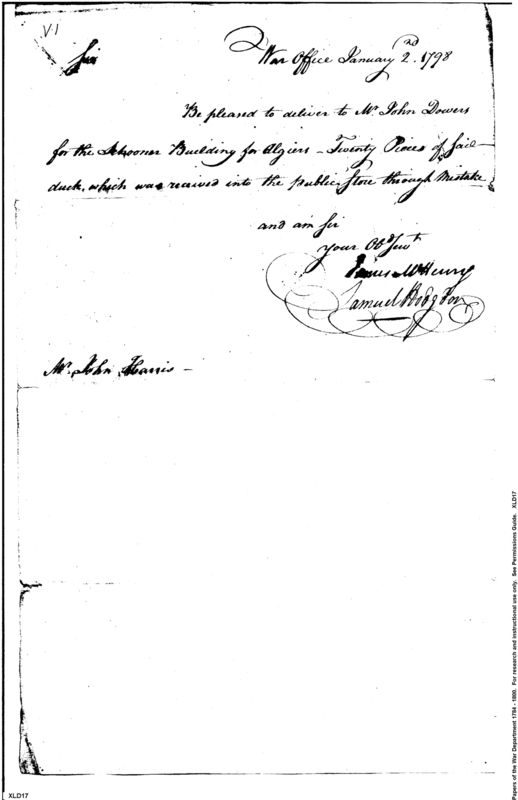 VI
Sir
War Office January 2nd. 1798
Be pleased to deliver to Mr. John Dowers
for the Schooner Building for Algiers - Twenty Pieces of Sail
duck, which was received into the public Store through Mistake
and am Sir
your Obd Servt
James McHenry
Samuel Hodgdon
Mr. John Harris -
Papers of the War Department 1784 - 1800. For research and instructional use only. See Permissions Guide. XLD17
XLD17